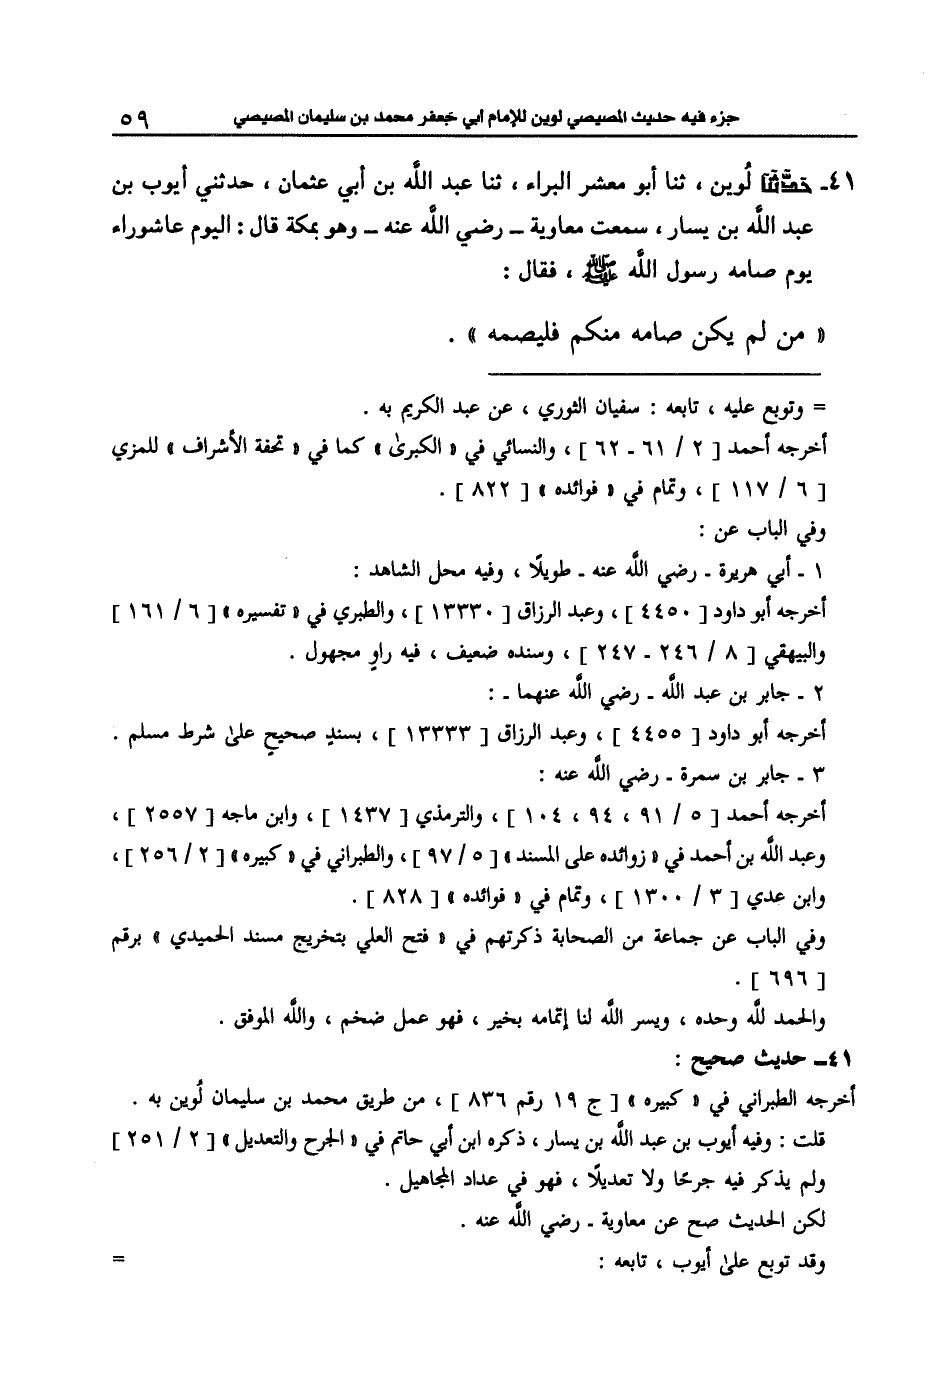 جزء فيه حديث المصيصي لوين للإمام أبي جعفر محمد بن سليمان المصيصي ٥٩
٤١ـ حدثنا لُوين ، ثنا أبو معشر البراء ، ثنا عبد اللَّه بن أبي عثمان ، حدثني أيوب بن
عبد اللَّه بن يسار ، سمعت معاوية ــ رضي اللَّه عنه ــ وهو بمكة قال : اليوم عاشوراء
يوم صامه رسول اللَّه ﷺ ، فقال :
« من لم يكن صامه منكم فليصمه » .
= وتوبع عليه ، تابعه : سفيان الثوري ، عن عبد الكريم به .
أخرجه أحمد [ ٢ / ٦١ ـ ٦٢ ] ، والنسائي في « الكبرىٰ » كما في « تحفة الأشراف » للمزي
[ ٦ / ١١٧ ] ، وتمام في « فوائده » [ ٨٢٢ ] .
وفي الباب عن :
١ ـ أبي هريرة ـ رضي اللَّه عنه ـ طويلًا ، وفيه محل الشاهد :
أخرجه أبو داود [ ٤٤٥٠ ] ، وعبد الرزاق [ ١٣٣٣٠ ] ، والطبري في « تفسيره » [ ٦ / ١٦١ ]
والبيهقي [ ٨ / ٢٤٦ ـ ٢٤٧ ] ، وسنده ضعيف ، فيه راوٍ مجهول .
٢ ـ جابر بن عبد اللَّه ـ رضي اللَّه عنهما ـ :
أخرجه أبو داود [ ٤٤٥٥ ] ، وعبد الرزاق [ ١٣٣٣٣ ] ، بسندٍ صحيحٍ علىٰ شرط مسلم .
٣ ـ جابر بن سمرة ـ رضي اللَّه عنه :
أخرجه أحمد [ ٥ / ٩١ ، ٩٤ ، ١٠٤ ] ، والترمذي [ ١٤٣٧ ] ، وابن ماجه [ ٢٥٥٧ ] ،
وعبد اللَّه بن أحمد في « زوائده على المسند » [ ٥ / ٩٧ ] ، والطبراني في « كبيره » [ ٢ / ٢٥٦ ] ،
وابن عدي [ ٣ / ١٣٠٠ ] ، وتمام في « فوائده » [ ٨٢٨ ] .
وفي الباب عن جماعة من الصحابة ذكرتهم في « فتح العلي بتخريج مسند الحميدي » برقم
[ ٦٩٦ ] .
والحمد للَّه وحده ، ويسر اللَّه لنا إتمامه بخير ، فهو عمل ضخم ، واللَّه الموفق .
٤١ـ حديث صحيح :
أخرجه الطبراني في « كبيره » [ ج ١٩ رقم ٨٣٦ ] ، من طريق محمد بن سليمان لُوين به .
قلت : وفيه أيوب بن عبد اللَّه بن يسار ، ذكره ابن أبي حاتم في « الجرح والتعديل » [ ٢ / ٢٥١ ]
ولم يذكر فيه جرحًا ولا تعديلًا ، فهو في عداد المجاهيل .
لكن الحديث صح عن معاوية ـ رضي اللَّه عنه .
وقد توبع علىٰ أيوب ، تابعه : =